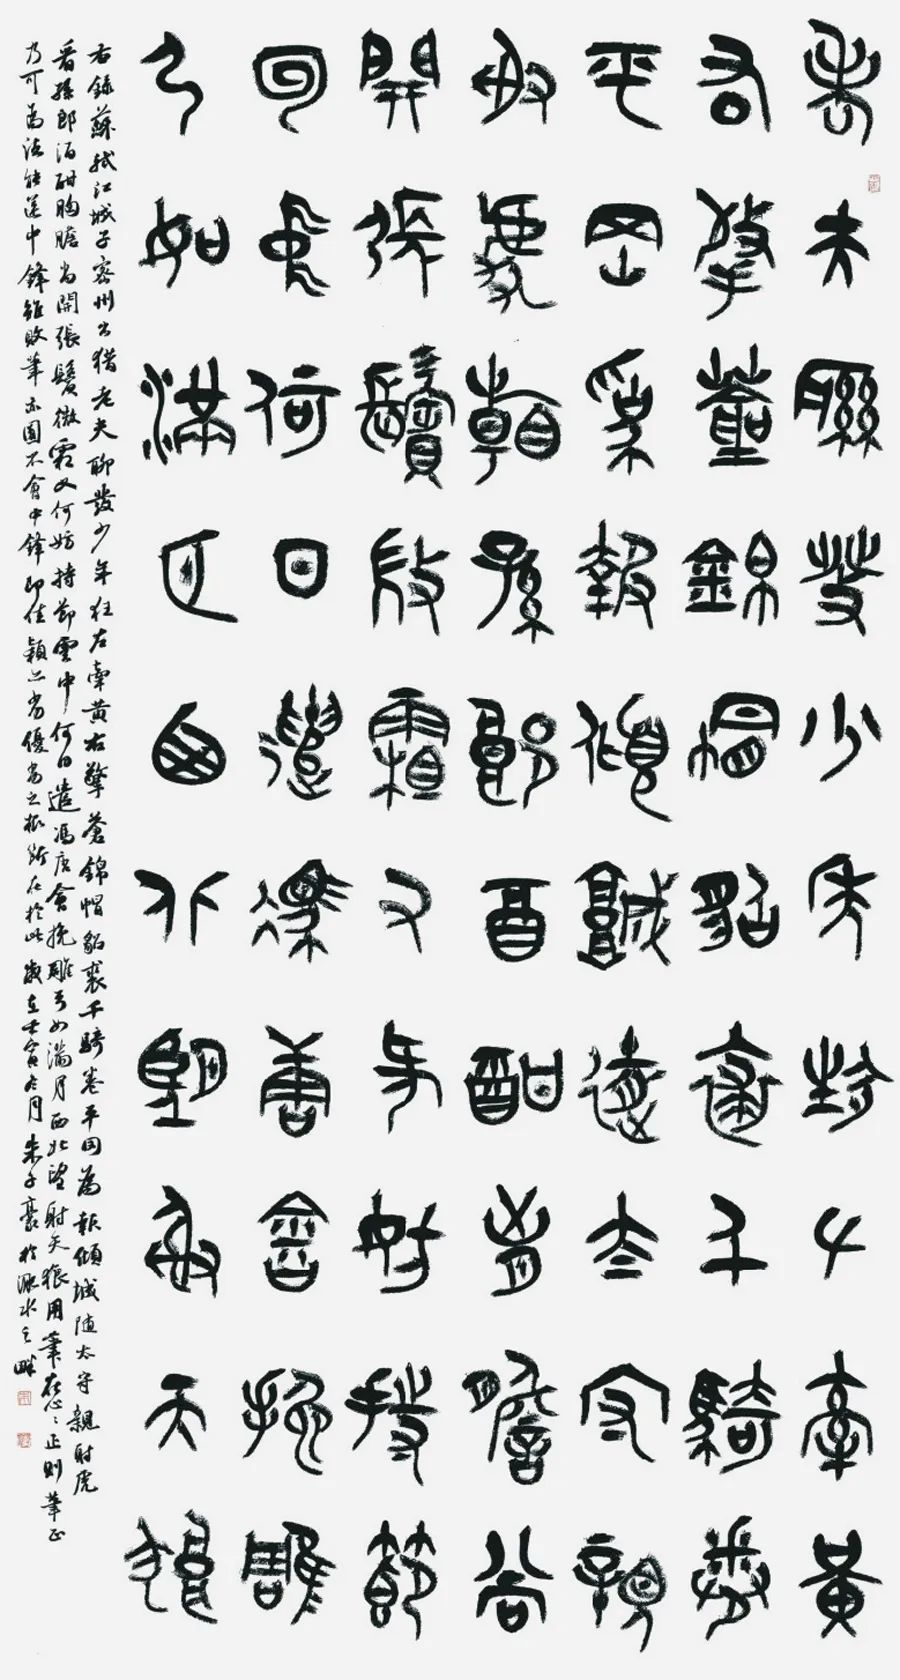 老夫聊發少年狂左牽黃
右擎蒼錦帽貂裘千騎卷
平岡為報傾城隨太守親
射虎看孫郎酒酣胸膽尚
開張鬢微霜又何妨持節
雲中何日遣馮唐會挽雕
弓如滿月西北望射天狼
右錄蘇軾江城子密州出獵老夫聊發少年狂左牽黃右擎蒼錦帽貂裘千騎卷平岡為報傾城随太守親射虎
看孫郎酒酣胸膽尚開張鬢微霜又何妨持節雲中何日遣馮唐會挽雕弓如滿月西北望射天狼用筆在心〻正則筆正
乃可為法能運中鋒雖敗筆亦圓不會中鋒即佳穎亦劣優劣之根斷在於此歲在壬寅冬月朱子豪於淝水之畔